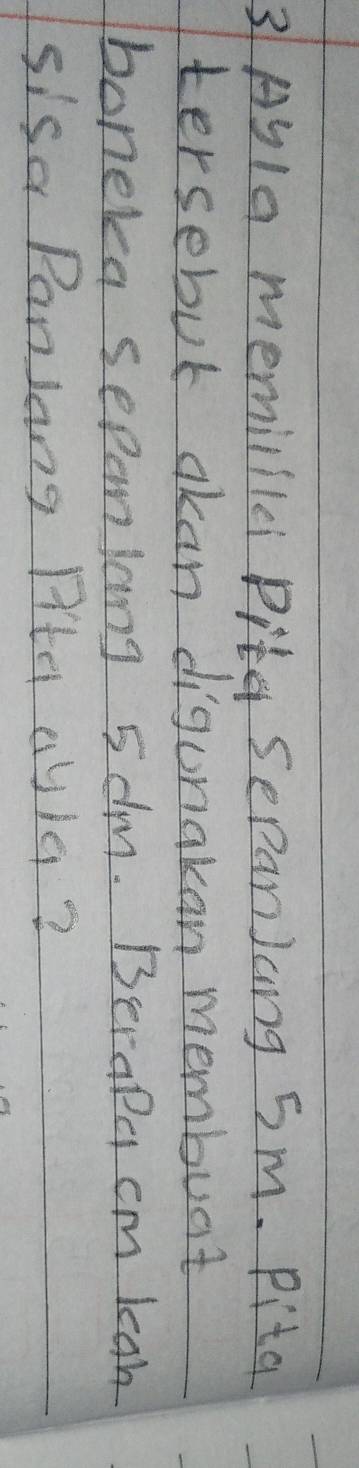 3 Ayla memiliki Pita SePanJang 5 m. Pita
tersebut akan digunakan membuat
boneka sePanJang 5 dm. BeraPa cm kah
sisa PanJang Pita ayla?